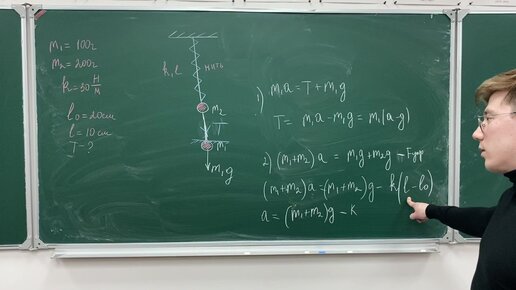 m₁ = 100г
m₂ = 200г
k = 30 Н/м
l₀ = 20см
l = 10см
T - ?
k, l
нить
m₂
T
m₁
m₁g
1) m₁a = T + m₁g
T = m₁a - m₁g = m₁(a-g)
2) (m₁+m₂)a = m₁g + m₂g - Fупр
(m₁+m₂)a = (m₁+m₂)g - k(l-l₀)
a = (m₁+m₂)g - k